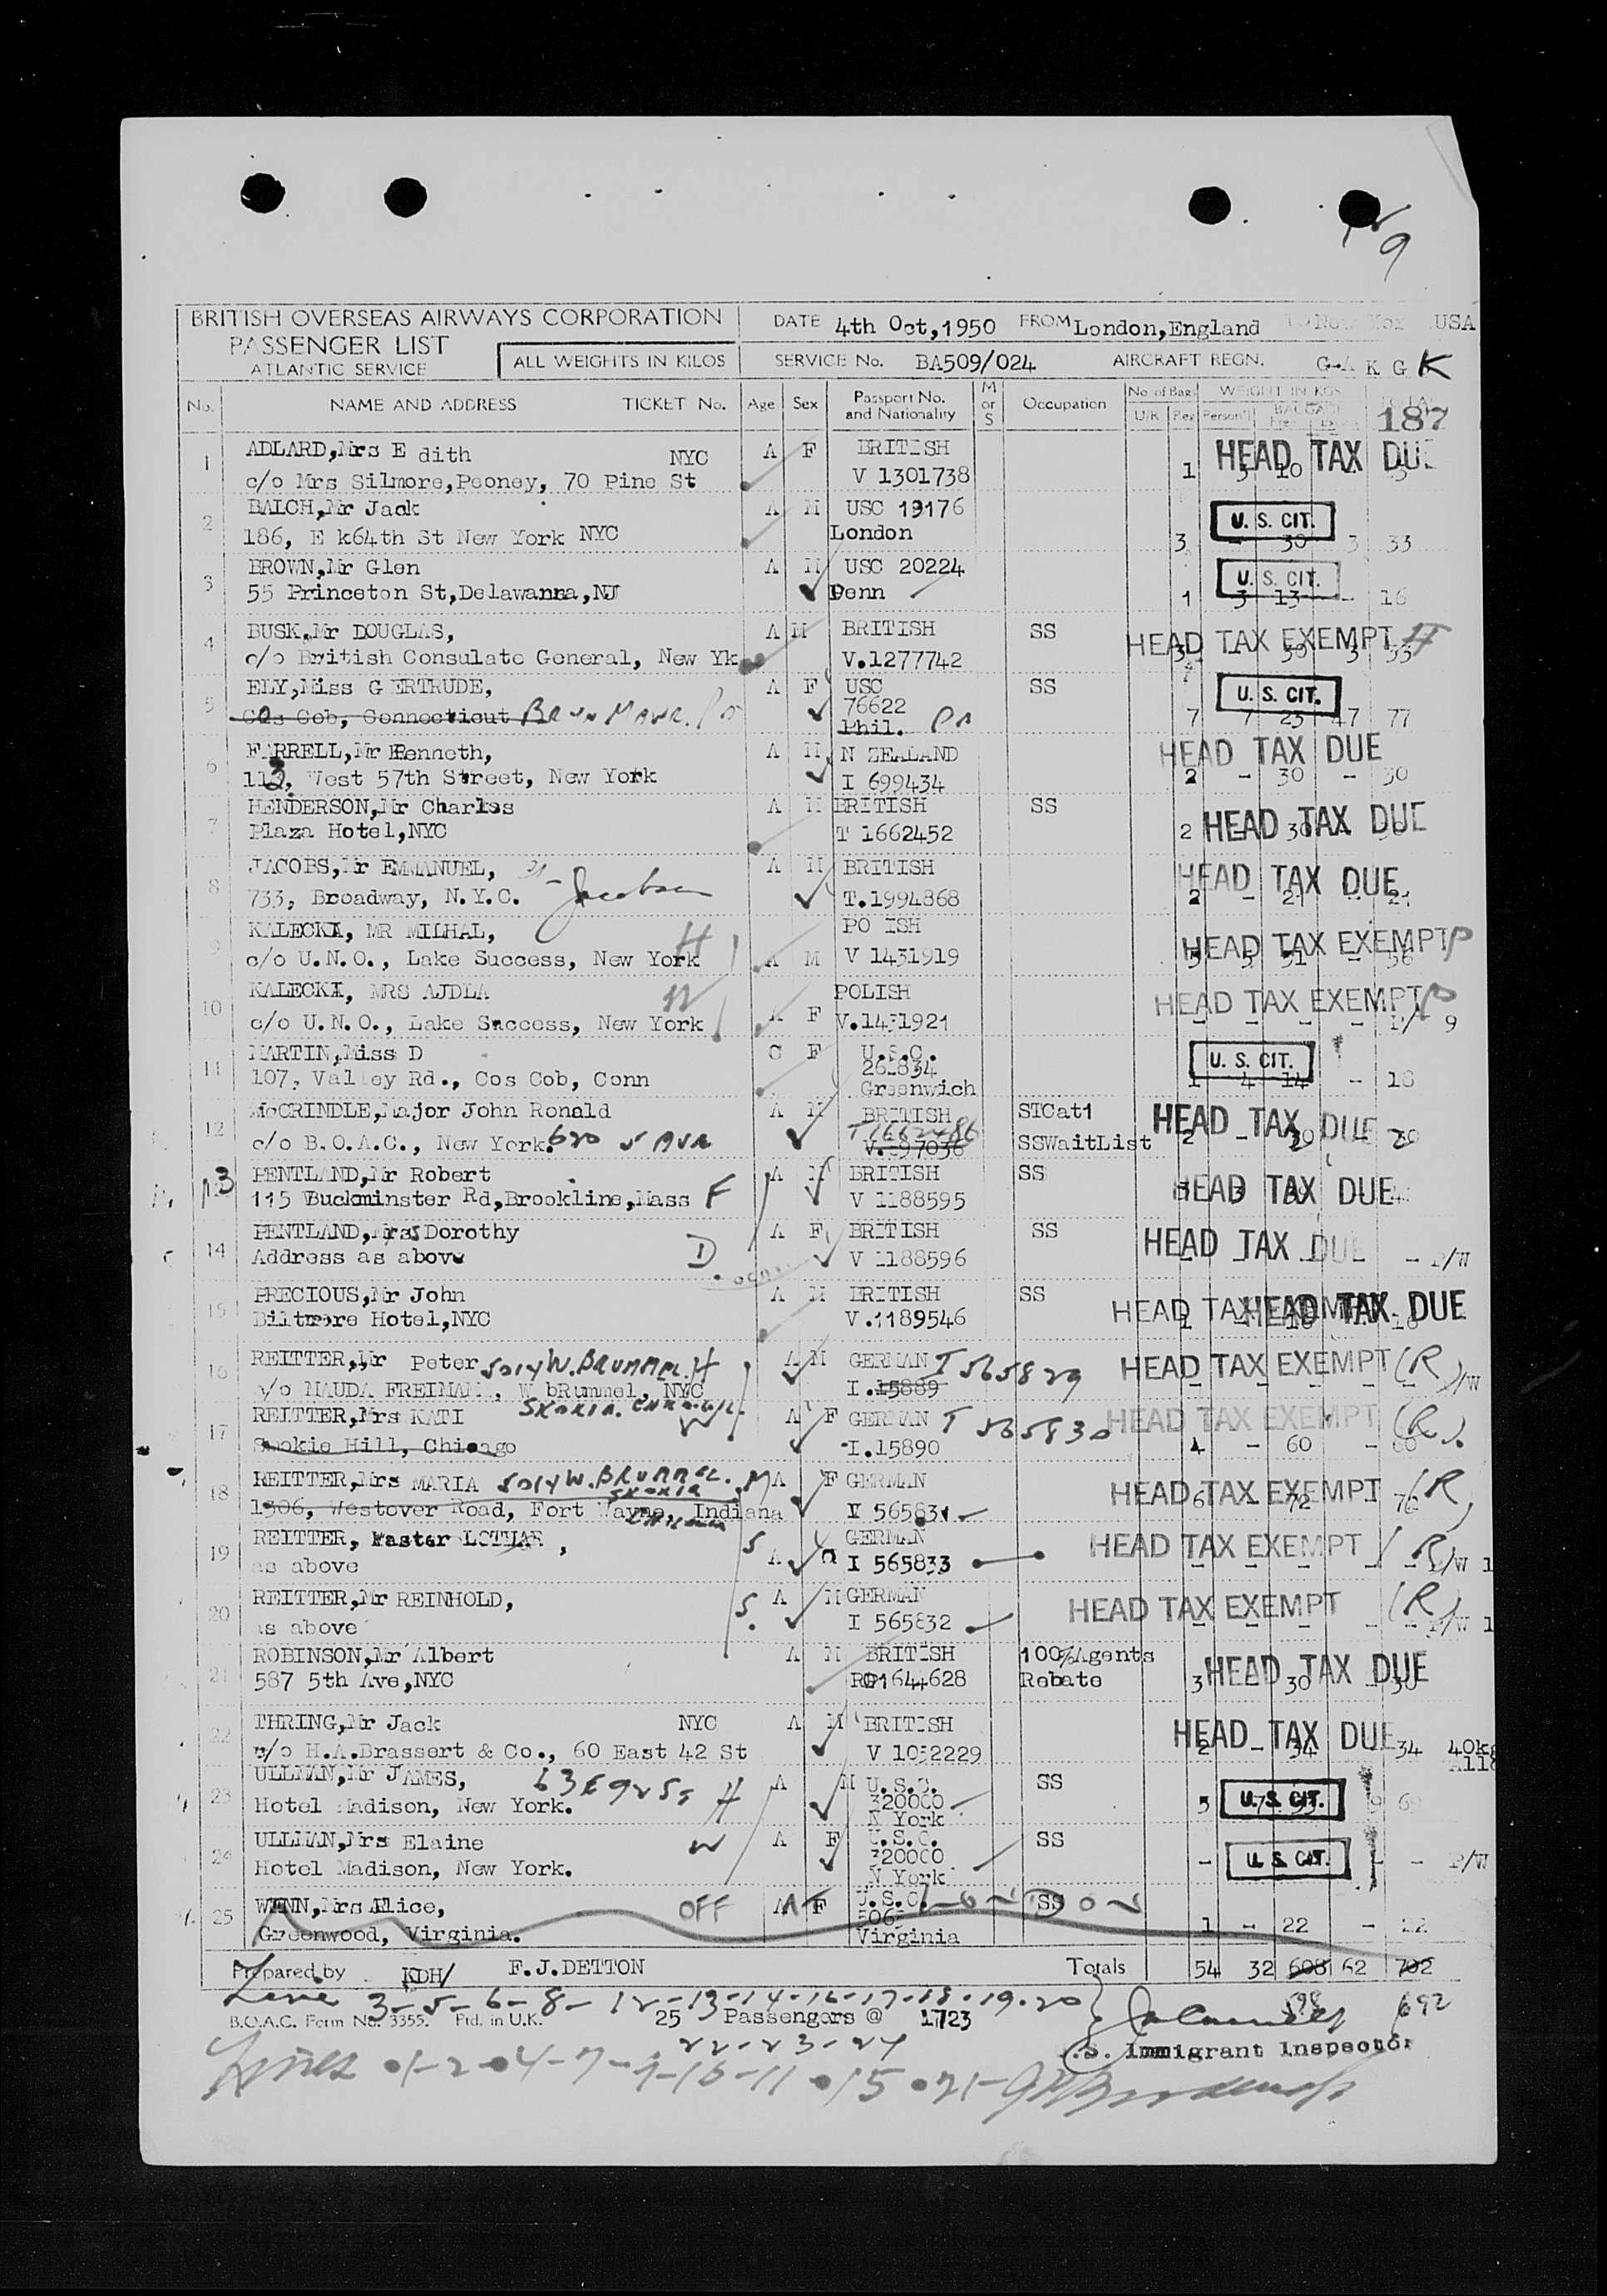 9
BRITISH OVERSEAS AIRWAYS CORPORATION
PASSENGER LIST
ATLANTIC SERVICE
ALL WEIGHTS IN KILOS
DATE 4th Oct,1950 FROM London,England USA
SERVICE No. BA509/024 AIRCRAFT REGN. G-A K G K
No. NAME AND ADDRESS TICKET No. Age Sex Passport No. and Nationality M or S Occupation No of Bags U/R Reg WEIGHT IN KGS Person'l BAGGAGE
187
1 ADLARD,Mrs E dith NYC A F BRITISH HEAD TAX DUE
c/o Mrs Silmore,Peoney, 70 Pine St V 1301738 1 3 10
2 BALCH,Mr Jack A M USC 19176 U. S. CIT.
186, E k64th St New York NYC London 3 - 30 3 33
3 BROWN,Mr Glen A M USC 20224 U. S. CIT.
55 Princeton St,Delawanna,NJ Penn 1 3 13 - 16
4 BUSK,Mr DOUGLAS, A M BRITISH SS HEAD TAX EXEMPT
c/o British Consulate General, New Yk V.1277742
5 ELY,Miss G ERTRUDE, A F USC SS U. S. CIT.
76622
Cos Cob, Connecticut BRYN MAWR. Pa Phil. Pa 7 7 23 47 77
6 FARRELL,Mr Kenneth, A M N ZEALAND HEAD TAX DUE
West 57th Street, New York I 699434 2 - 30 - 30
7 HENDERSON,Mr Charles A M BRITISH SS HEAD TAX DUE
Plaza Hotel,NYC T 1662452 2
8 JACOBS,Mr EMMANUEL, A M BRITISH HEAD TAX DUE
733, Broadway, N.Y.C. Jacobson T.1994868 2 - 21 - 21
9 KALECKI, MR MILHAL, PO ISH
c/o U.N.O., Lake Success, New York H A M V 1431919 HEAD TAX EXEMPT
10 KALECKI, MRS AJDLA W POLISH HEAD TAX EXEMPT
c/o U.N.O., Lake Success, New York F V.1431921
11 MARTIN,Miss D C F U.S.C. U. S. CIT.
107, Valley Rd., Cos Cob, Conn Greenwich 1 4 14 - 18
12 McCRINDLE,Major John Ronald A M BRITISH STCat1 HEAD TAX DUE
c/o B.O.A.C., New York. 620 5 AVE T1662486 SSWaitList 2
13 PENTLAND,Mr Robert A M BRITISH SS HEAD TAX DUE
115 Buckminster Rd,Brookline,Mass F V 1188595
14 PENTLAND,Mrs Dorothy A F BRITISH SS HEAD TAX DUE
Address as above D V 1188596 P/W
15 PRECIOUS,Mr John A M BRITISH SS HEAD TAX EXEMPT HEAD TAX DUE
Biltmore Hotel,NYC V.1189546
16 REITTER,Mr Peter 5014 W. BRUMMEL. H A M GERMAN I 565829 HEAD TAX EXEMPT (R)
c/o MAUDA W bRummel, NYC I.15889 P/W
17 REITTER,Mrs KATI W A F GERMAN I 565830 HEAD TAX EXEMPT (R)
Skokie Hill, Chicago I.15890 4 - 60 - 60
18 REITTER,Mrs MARIA 5014 W. BRUMMEL. M A F GERMAN HEAD TAX EXEMPT (R)
1306, Westover Road, Fort Wayne, Indiana V 565831 6 - 72 - 76
19 REITTER, Master LOTHAR, S A GERMAN HEAD TAX EXEMPT (R)
as above I 565833 P/W
20 REITTER,Mr REINHOLD, S. A M GERMAN HEAD TAX EXEMPT (R)
as above I 565832 P/W
21 ROBINSON,Mr Albert A M BRITISH 100%Agents HEAD TAX DUE
587 5th Ave,NYC 1644628 Rebate 3 - 30 - 30
22 THRING,Mr Jack NYC A M BRITISH HEAD TAX DUE
c/o H.A.Brassert & Co., 60 East 42 St V 1052229 2 - 34 34 40kg
23 ULLMAN,Mr JAMES, 63 E 9 St H A M U.S.C. SS U. S. CIT.
320000
Hotel Madison, New York. N York 5
24 ULLMAN,Mrs Elaine W A F U.S.C. SS U. S. CIT.
320000
Hotel Madison, New York. N York - - P/W
25 WINN,Mrs Alice, OFF A F U.S.C. LONDON SS
Greenwood, Virginia. Virginia 1 - 22 - 22
Prepared by KDH/ F.J.DETTON Totals 54 32 608 62 702
598 692
Line 3-5-6-8-12-13-14-16-17-18-19-20
B.O.A.C. Form No. 3355. Ptd. in U.K. 25 Passengers @ 1723
22-23-24
U.S. Immigrant Inspector
Lines 1-2-4-7-9-10-11-15-21-